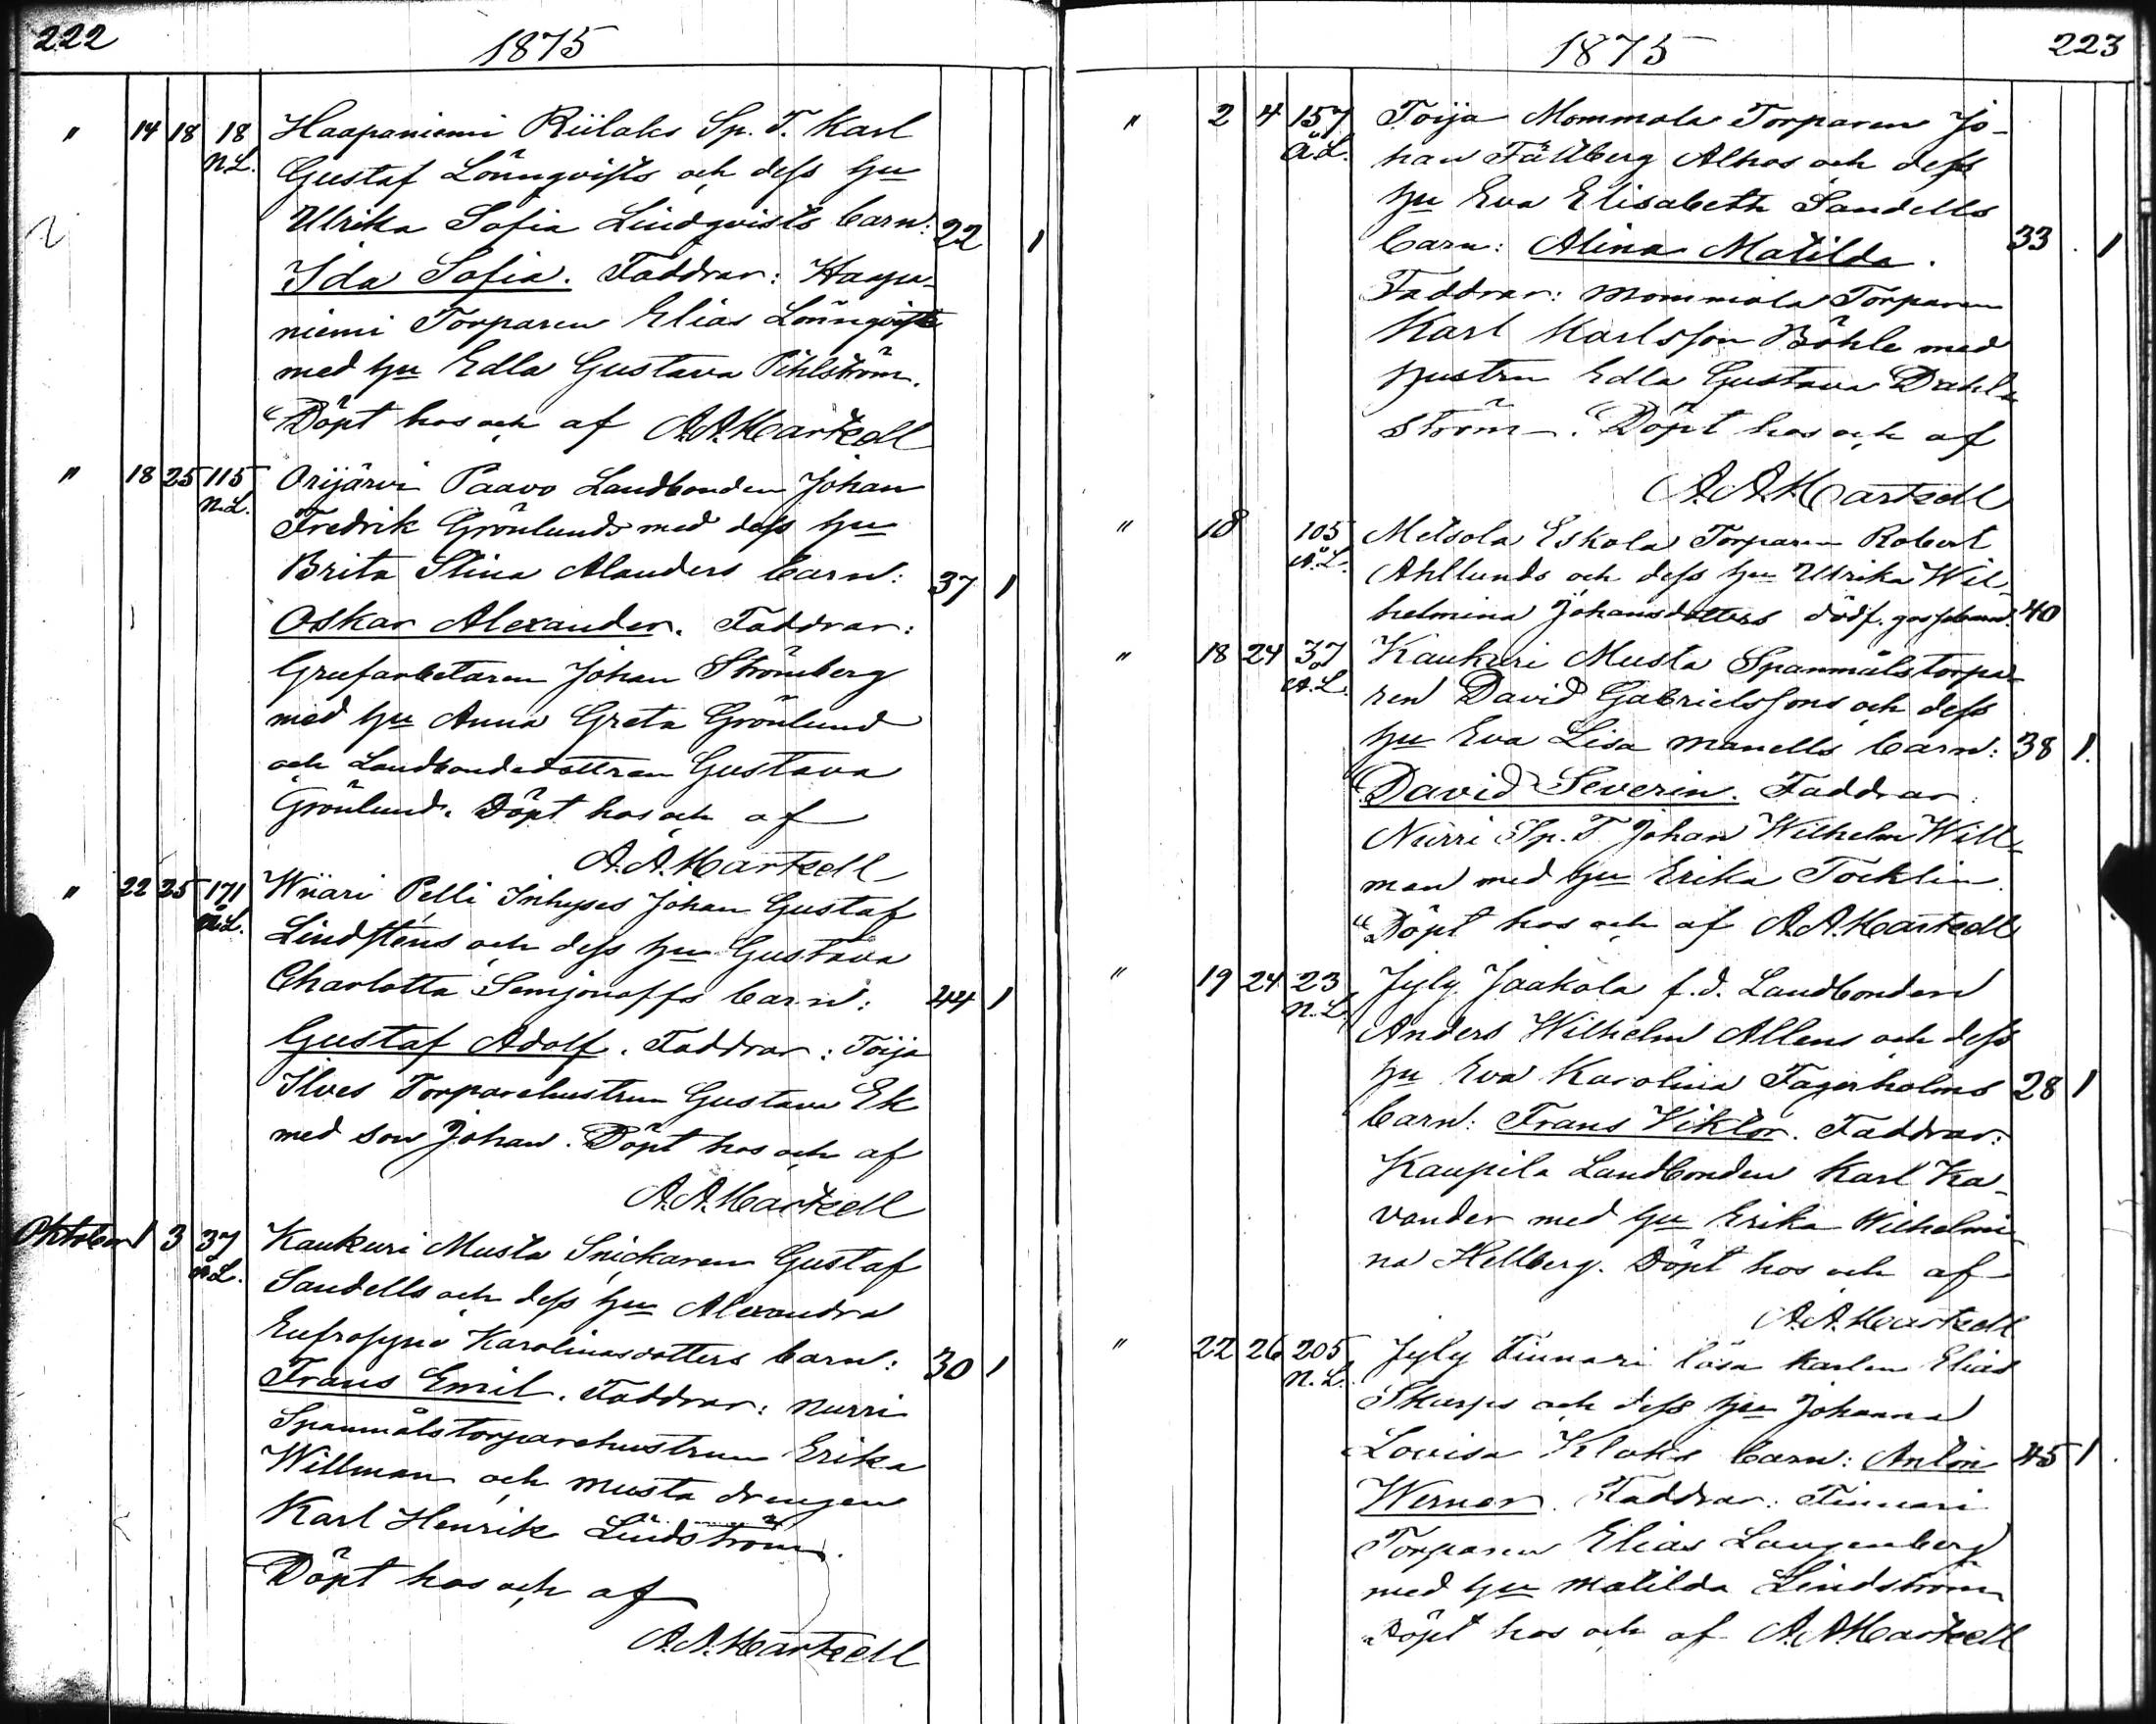 222
1875
" 14 18 18 Haapaniemi Riilaks Sp. T. Karl
N.L. Gustaf Lönnqvists och dess hu
Ulrika Sofia Lindqvists barn: 22 1
Ida Sofia. Faddrar: Haapa-
niemi Torparen Elias Lönnqvist
med hu Edla Gustava Pihlström.
Döpt hos och af A.A. Hartzell
" 18 25 115 Orijärvi Paavo Landbonden Johan
N.L. Fredrik Grönlunds med dess hu
Brita Stina Alanders barn: 37 1
Oskar Alexander. Faddrar:
Grufarbetaren Johan Strömberg
med hu Anna Greta Grönlund
och Landbondedottren Gustava
Grönlund. Döpt hos och af
A.A. Hartzell
" 22 25 171 Wiiari Pelli Inhyses Johan Gustaf
Lindsténs och dess hu Gustava
Charlotta Semjonoffs barn: 44 1
Gustaf Adolf. Faddrar: Toija
Ilves Torparehustrun Gustava Ek
med son Johan. Döpt hos och af
A.A. Hartzell
Oktober 1 3 37 Kaukuri Musta Snickaren Gustaf
Å.L. Sandells och dess hu Alexandra
Eufrosyne Karolinasdotters barn: 30 1
Frans Emil. Faddrar: Nurri
Spanmålstorparehustrun Erika
Willman och Musta drengen
Karl Henrik Lindström.
Döpt hos och af
A.A. Hartzell
1875
223
" 2 4 157 Toija Mommola Torparen Jo-
Å.L. han Fällberg Alhos och dess
hu Eva Elisabeth Sandells
barn: Alina Matilda. 33 1
Faddrar: Mommola Torparen
Karl Karlsson Böhle med
hustru Edla Gustava Dahl-
ström. Döpt hos och af
A.A. Hartzell
" 18 105 Metsola Eskola Torparen Robert
Å.L. Ahllunds och dess hu Ulrika Wil-
helmina Johansdotters dödf. gossebarn. 40
" 18 24 37 Kaukuri Musta Spanmålstorpa-
Å.L. ren David Gabrielssons och dess
hu Eva Lisa Manells barn: 38 1.
David Severin. Faddrar:
Nurri Sp. T. Johan Wilhelm Will-
man med hu Erika Tocklin.
Döpt hos och af A.A. Hartzell
" 19 24 23 Jyly Jaakola f.d. Landbonden
N.L. Anders Wilhelm Allens och dess
hu Eva Karolina Fagerholms 28 1
barn: Frans Viktor. Faddrar:
Kaupila Landbonden Karl Ka-
vander med hu Erika Wilhelmi-
na Hellberg. Döpt hos och af
A.A. Hartzell
" 22 26 205 Jyly Finnari lösa karlen Elias
N.L. Skarps och dess hu Johanna
Lovisa Kloks barn: Anton 45 1
Werner. Faddrar: Finnari
Torparen Elias Langenberg
med hu Matilda Lindström
Döpt hos och af A.A. Hartzell